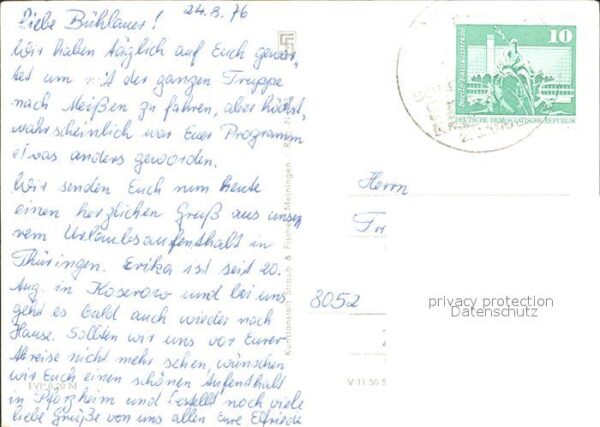 24.8.76
Liebe Bühlauer!
Wir haben täglich auf Euch gewar-
tet um mit der ganzen Truppe
nach Meißen zu fahren, aber höchst-
wahrscheinlich war Euer Programm
etwas anders geworden.
Wir senden Euch nun heute
einen herzlichen Gruß aus unse-
rem Urlaubsaufenthalt in
Thüringen. Erika ist seit 20.
Aug. in Koserow und bei uns
geht es bald auch wieder nach
Hause. Sollten wir uns vor Eurer
Abreise nicht mehr sehen, wünschen
wir Euch einen schönen Aufenthalt
in Pforzheim und bestellt noch viele
liebe Grüße von uns allen Eure Elfriede
EVP 0,20 M
Kunstanstalt Straub & Fischer Meiningen
V 11 50
10
DEUTSCHE DEMOKRATISCHE REPUBLIK
Herrn
8052
privacy protection
Datenschutz